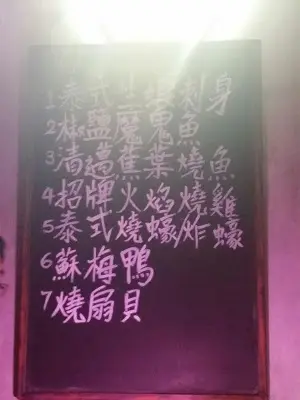 1 泰式生蝦刺身
2 椒鹽魔鬼魚
3 清邁蕉葉燒魚
4 招牌火焰燒雞
5 泰式燒蠔/炸蠔
6 蘇梅鴨
7 燒扇貝